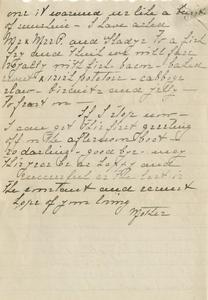 one it warmed us like a burst
of sunshine - I have asked
Mr & Mrs P. and Gladys to a fish
fry and think we will fare
royally with fish bacon - baked
sweet & irish potatoes - cabbage
slaw - biscuits and jelly -
to front on -
If I stop now -
I can get this first greeting
off on the afternoon boat -
so darling - good bye - may
this year be as happy and
successful as the last is
the constant and earnest
hope of your loving
Mother